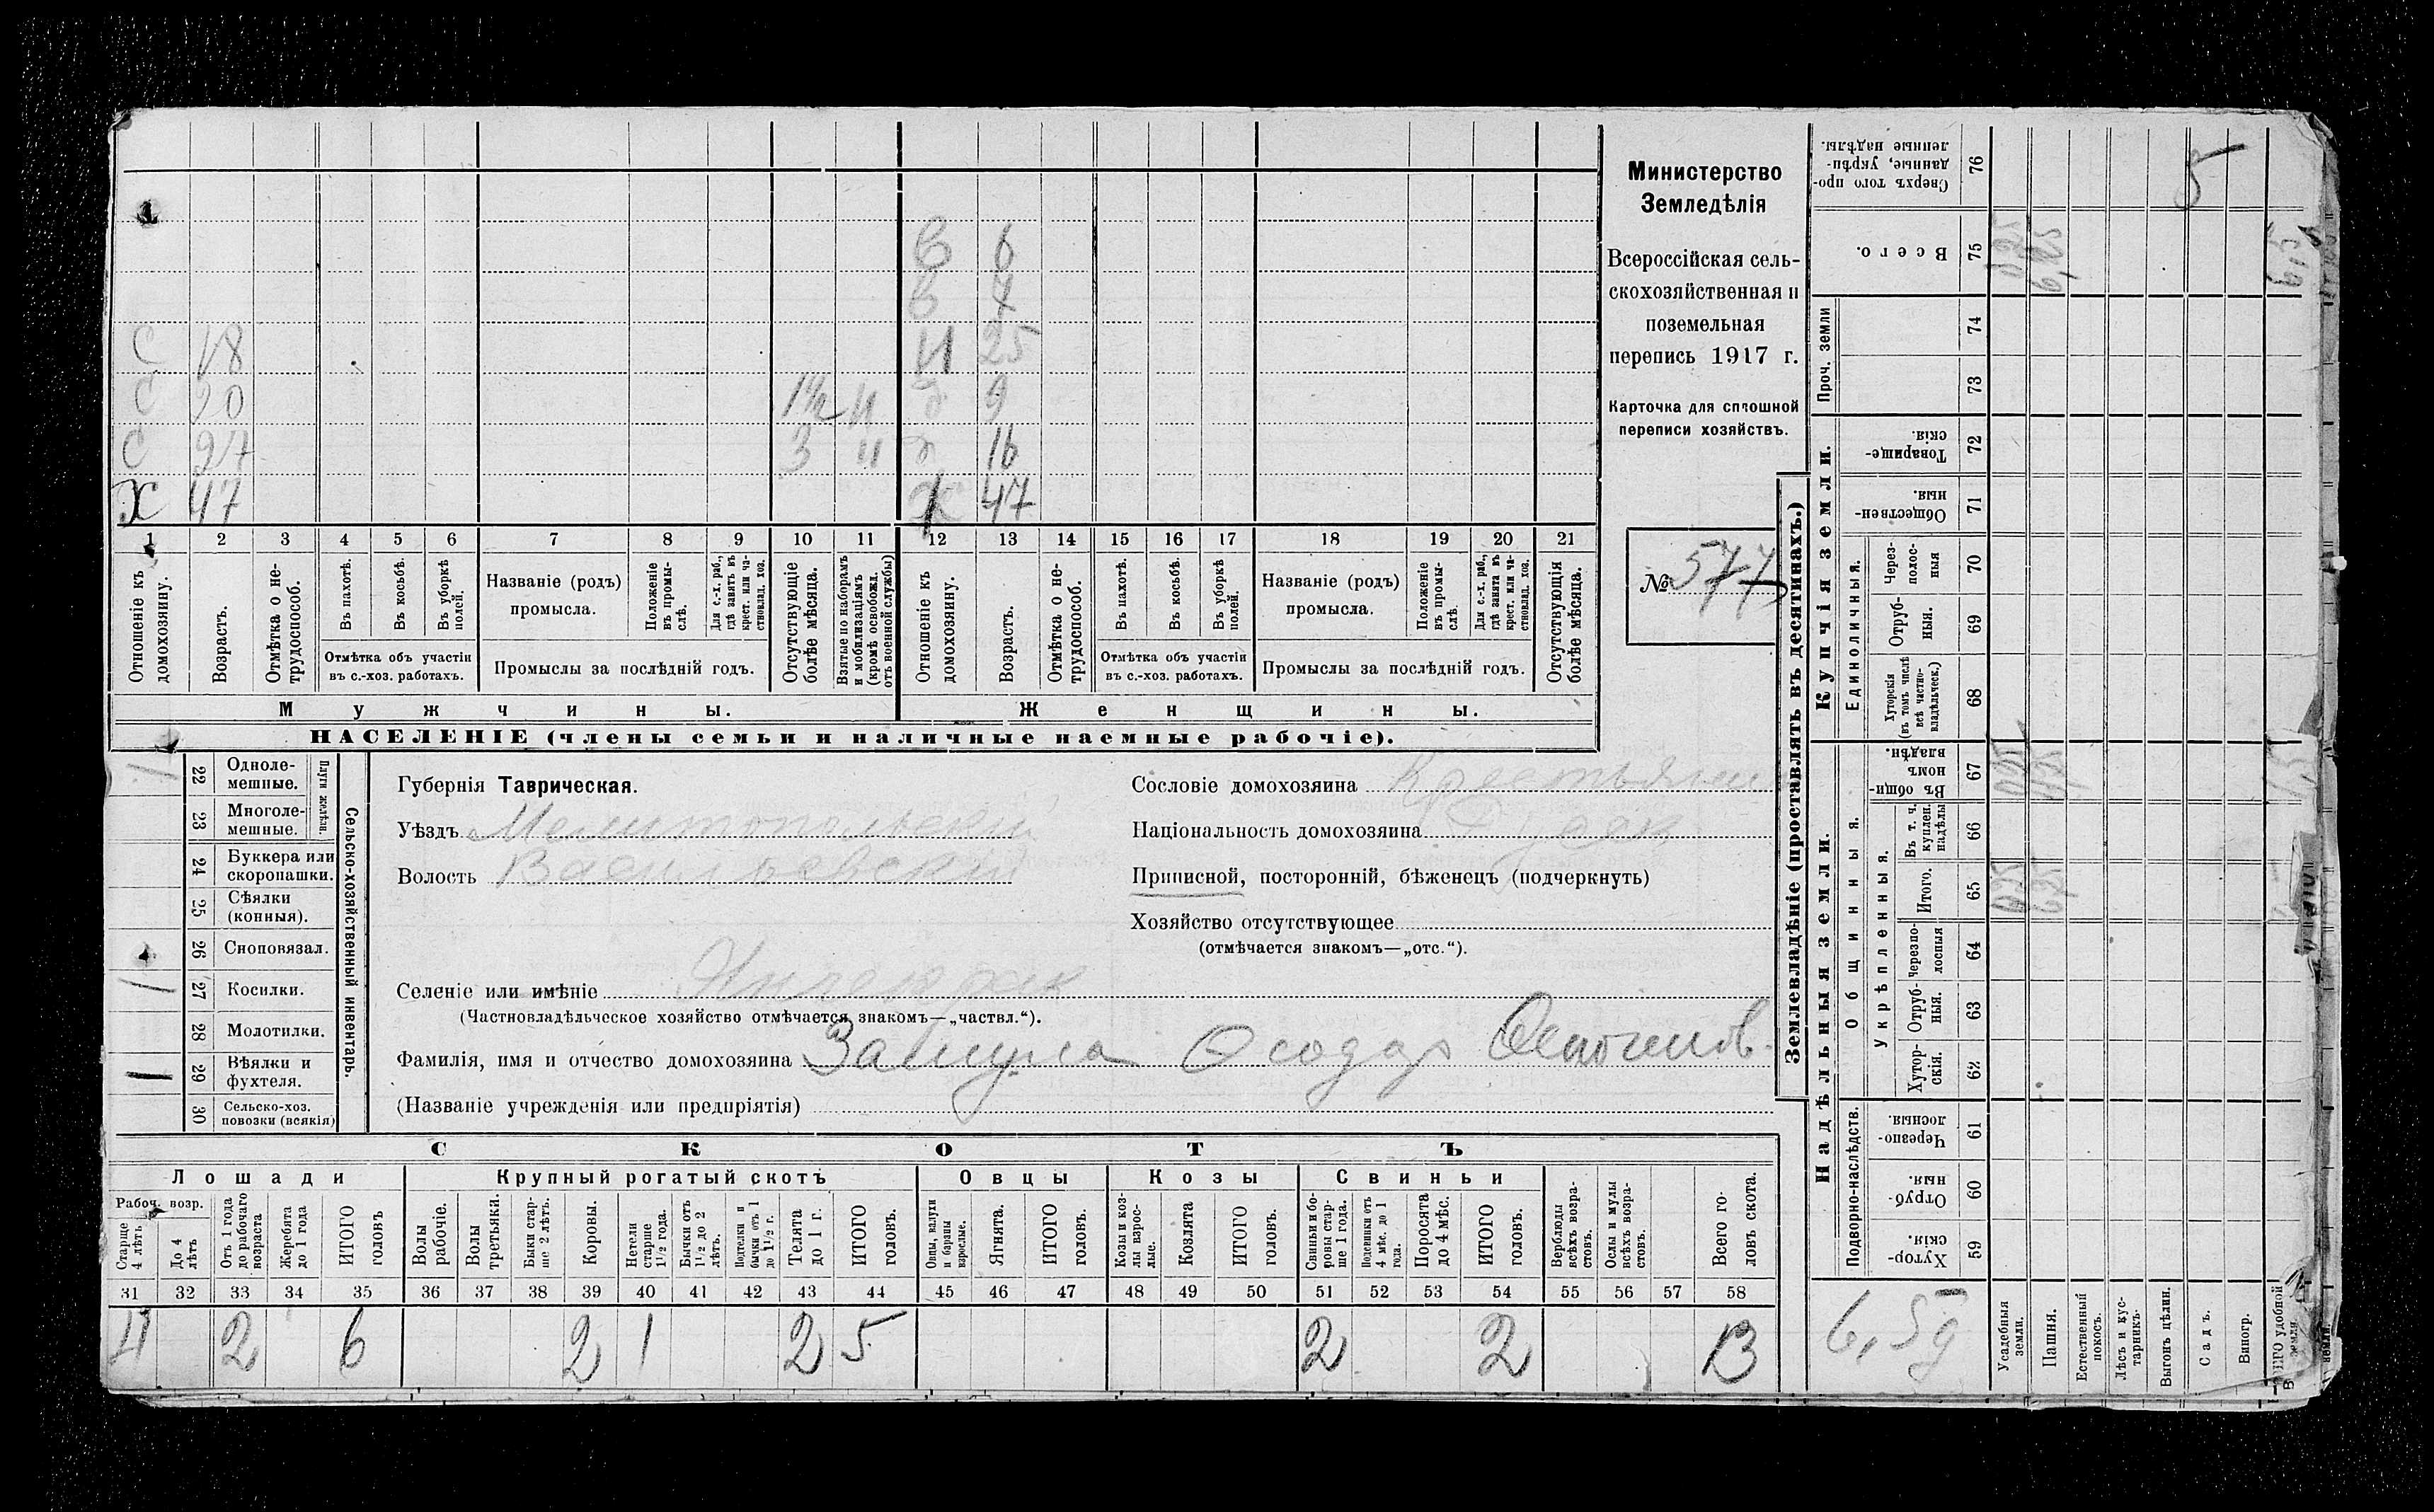 С 18
С 20 1½ и
С 27 3 и
Х 47
В 6
В 4
И 25
9
16
Ж 47
1 2 3 4 5 6 7 8 9 10 11 12 13 14 15 16 17 18 19 20 21
Отношеніе къ домохозяину.
Возрастъ.
Отмѣтка о нетрудоспособ.
Въ пахотѣ.
Въ косьбѣ.
Въ уборкѣ полей.
Отмѣтка объ участіи въ с.-хоз. работахъ.
Названіе (родъ) промысла.
Положеніе въ промыслѣ.
Для с.-х. раб., гдѣ занятъ въ крест. или частновлад. хоз.
Промыслы за послѣдній годъ.
Отсутствующіе болѣе мѣсяца.
Взятые по наборамъ и мобилизаціямъ (кромѣ освобожд. отъ военной службы)
Отношеніе къ домохозяину.
Возрастъ.
Отмѣтка о нетрудоспособ.
Въ пахотѣ.
Въ косьбѣ.
Въ уборкѣ полей.
Отмѣтка объ участіи въ с.-хоз. работахъ.
Названіе (родъ) промысла.
Положеніе въ промыслѣ.
Для с.-х. раб., гдѣ занята въ крест. или частновлад. хоз.
Промыслы за послѣдній годъ.
Отсутствующія болѣе мѣсяца.
Мужчины.
Женщины.
НАСЕЛЕНІЕ (члены семьи и наличные наемные рабочіе).
Министерство
Земледѣлія
Всероссійская сель-
скохозяйственная и
поземельная
перепись 1917 г.
Карточка для сплошной
переписи хозяйствъ.
№ 577
Сельско-хозяйственный инвентарь.
Плуги желѣзн.
1 22 Одноле-
мешные.
23 Многоле-
мешные.
24 Буккера или
скоропашки.
25 Сѣялки
(конныя).
26 Сноповязал.
1 27 Косилки.
28 Молотилки.
1 29 Вѣялки и
фухтеля.
30 Сельско-хоз.
повозки (всякія)
Губернія Таврическая.
Уѣздъ Мелитопольскій
Волость Васильевскій
Селеніе или имѣніе Янчекрак
(Частновладѣльческое хозяйство отмѣчается знакомъ—„частвл.“).
Фамилія, имя и отчество домохозяина
(Названіе учрежденія или предпріятія)
Сословіе домохозяина Крестьянин
Національность домохозяина
Приписной, посторонній, бѣженецъ (подчеркнуть)
Хозяйство отсутствующее
(отмѣчается знакомъ—„отс.“).
СКОТЪ
Лошади
Крупный рогатый скотъ
Овцы
Козы
Свиньи
Рабоч. возр.
Старше 4 лѣтъ
До 4 лѣтъ
Отъ 1 года до рабочаго возраста
Жеребята до 1 года
ИТОГО головъ
Волы рабочіе.
Волы третьяки.
Быки старше 2 лѣтъ.
Коровы.
Нетели старше 1½ года.
Бычки отъ 1½ до 2 лѣтъ.
Подтелки и бычки отъ 1 до 1½ г.
Телята до 1 г.
ИТОГО головъ.
Овцы, валухи и бараны взрослые.
Ягнята.
ИТОГО головъ.
Козы и козлы взрослые.
Козлята
ИТОГО головъ.
Свиньи и боровы старше 1 года.
Подсвинки отъ 4 мѣс. до 1 года.
Поросята до 4 мѣс.
ИТОГО головъ.
Верблюды всѣхъ возрастовъ.
Ослы и мулы всѣхъ возрастовъ.
Всего головъ скота.
31 32 33 34 35 36 37 38 39 40 41 42 43 44 45 46 47 48 49 50 51 52 53 54 55 56 57 58
4 2 6 2 1 2 5 2 2 13
Землевладѣніе (проставлять въ десятинахъ.)
Надѣльныя земли.
Купчія земли.
Проч. земли
Сверхъ того проданные, укрѣпленные надѣлы. 76
5
Всего. 75
74
73
Товарищескія. 72
Общественныя. 71
Единоличныя.
Черезполосныя 70
Отрубныя. 69
Хуторскія (въ томъ числѣ всѣ частновладѣльческ.) 68
Общинныя.
Въ общинномъ владѣн. 67
Укрѣпленныя.
Въ т. ч. куплен. надѣлы 66
Итого. 65
Черезполосныя 64
Отрубныя. 63
Хуторскія. 62
Подворно-наслѣдств.
Черезполосныя 61
Отрубныя. 60
Хуторскія. 59
Усадебныя земли.
Пашня.
Естественный покосъ.
Лѣсъ и кустарникъ.
Выгонъ цѣлин.
Садъ.
Виногр.